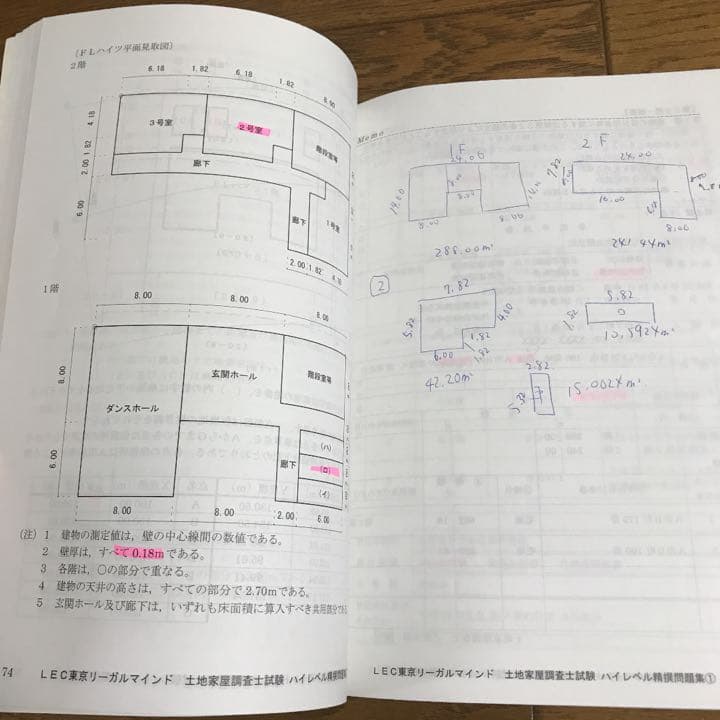 (FLハイツ平面見取図)
2階
6.18 1.82 6.18 1.82 8.00
4.18
1.82
2.00
6.00
3号室
2号室
階段室等
廊下
廊下
1号室
2.00 1.82 4.18
1階
8.00 8.00 8.00
8.00
6.00
ダンスホール
玄関ホール
階段室等
廊下
(ハ)
(ロ)
(イ)
8.00 8.00 2.00 6.00
(注) 1 建物の測定値は、壁の中心線間の数値である。
2 壁厚は、すべて0.18mである。
3 各階は、○の部分で重なる。
4 建物の天井の高さは、すべての部分で2.70mである。
5 玄関ホール及び廊下は、いずれも床面積に算入すべき共用部分であ
74 LEC東京リーガルマインド 土地家屋調査士試験 ハイレベル精撰問題
Memo
1F
24.00
14.00
8.00
8.00
8.00
2F
24.00
7.82
16.00
8.00
288.00㎡
241.44㎡
2
7.82
5.82
4.00
1.82
6.00
1.82
42.20㎡
5.82
1.82
ロ
10.5924㎡
2.82
5.32
15.0024㎡
LEC東京リーガルマインド 土地家屋調査士試験 ハイレベル精撰問題集①